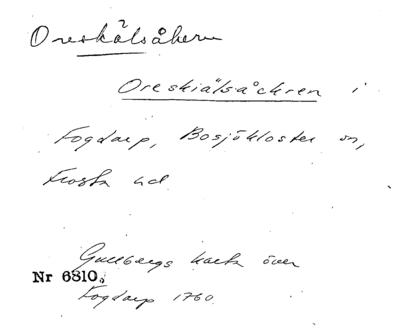 Oreskälsåkern
Oreskiälsåckren i
Fogdarp, Bosjökloster sn,
Frosta hd
Gullbergs karta över
Nr 6810.
Fogdarp 1760